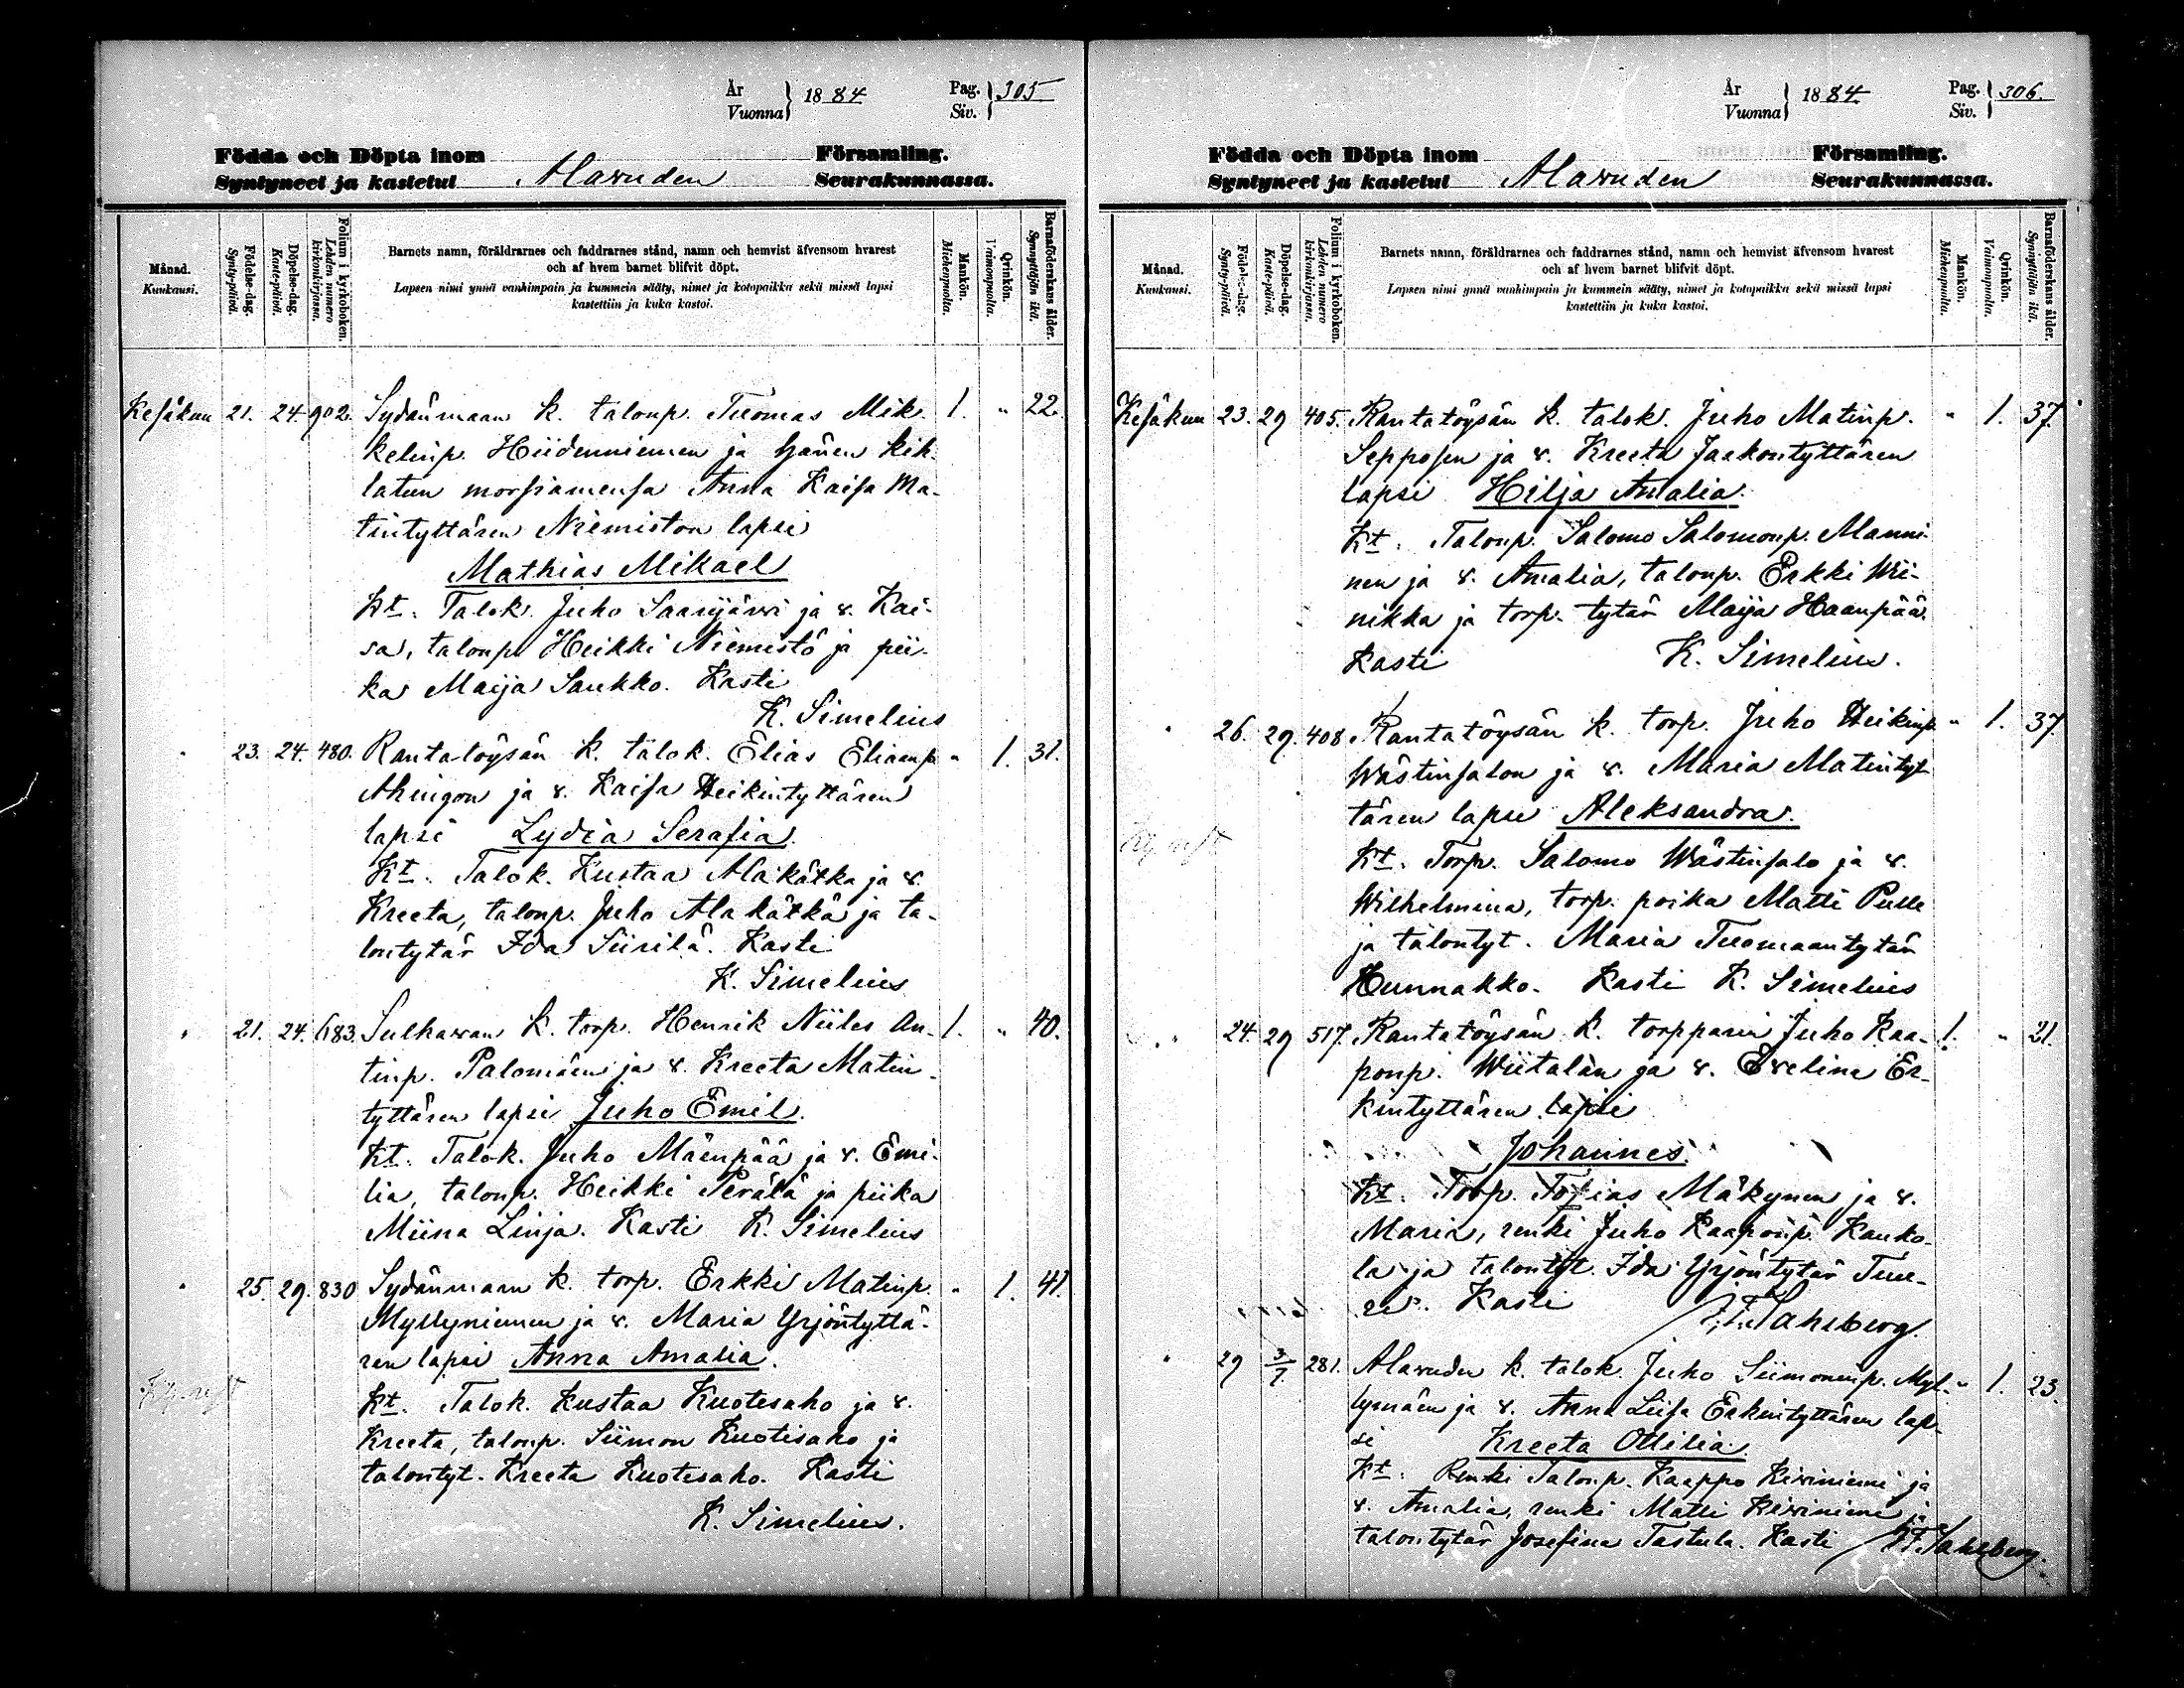 År
Vuonna } 1884
Pag.
Siv. } 305
Födda och Döpta inom Församling.
Syntyneet ja kastetut Alavuden Seurakunnassa.
Månad.
Kuukausi.
Födelse-dag.
Synty-päivä.
Döpelse-dag.
Kaste-päivä.
Folium i kyrkoboken.
Lehden numero
kirkonkirjassa.
Barnets namn, föräldrarnes och faddrarnes stånd, namn och hemvist äfvensom hvarest
och af hvem barnet blifvit döpt.
Lapsen nimi ynnä vanhimpain ja kummein sääty, nimet ja kotopaikka sekä missä lapsi
kastettiin ja kuka kastoi.
Mankön.
Miehenpuolia.
Qvinkön.
Vaimonpuolia.
Barnaföderskans ålder.
Synnyttäjän ikä.
Kesäkuu 21. 24. 902. Sydänmaan k. talonp. Tuomas Mik- 1. " 22.
kelinp. Hiidenniemen ja hänen kih-
latun morsiamensa Anna Kaisa Ma-
tintyttären Niemiston lapsi
Mathias Mikael
Kt. Talok. Juho Saarijärvi ja v. Kai-
sa, talonp. Heikki Niemistö ja pii-
ka Maija Saukko. Kasti
K. Simelius
" 23. 24. 480. Rantatöysän k. talok. Elias Eliaanp. " 1. 31.
Ahingon ja v. Kaisa Heikintyttären
lapsi Lydia Serafia.
Kt. Talok. Kustaa Alakätkä ja v.
Kreeta, talonp. Juho Alakätkä ja ta-
lontytär Ida Siirilä. Kasti
K. Simelius
" 21. 24. 683. Sulkavan k. torp. Henrik Niiles An- 1. " 40.
tinp. Palomäen ja v. Kreeta Matin-
tyttären lapsi Juho Emil.
Kt. Talok. Juho Mäenpää ja v. Emi-
lia, talonp. Heikki Perälä ja piika
Miina Linja. Kasti K. Simelius
" 25. 29. 830 Sydänmaan k. torp. Erkki Matinp. " 1. 41.
Myllyniemen ja v. Maria Yrjöntyttä-
ren lapsi Anna Amalia.
Kt. Talok. Kustaa Kuotesaho ja v.
Kreeta, talonp. Siimon Kuotisaho ja
talontyt. Kreeta Kuotesaho. Kasti
K. Simelius.
År
Vuonna } 1884
Pag.
Siv. } 306.
Födda och Döpta inom Församling.
Syntyneet ja kastetut Alavuden Seurakunnassa.
Månad.
Kuukausi.
Födelse-dag.
Synty-päivä.
Döpelse-dag.
Kaste-päivä.
Folium i kyrkoboken.
Lehden numero
kirkonkirjassa.
Barnets namn, föräldrarnes och faddrarnes stånd, namn och hemvist äfvensom hvarest
och af hvem barnet blifvit döpt.
Lapsen nimi ynnä vanhimpain ja kummein sääty, nimet ja kotopaikka sekä missä lapsi
kastettiin ja kuka kastoi.
Mankön.
Miehenpuolia.
Qvinkön.
Vaimonpuolia.
Barnaföderskans ålder.
Synnyttäjän ikä.
Kesäkuu 23. 29 405. Rantatöysän k. talok. Juho Matinp. " 1. 37.
Sepposen ja v. Kreeta Jaakontyttären
lapsi Hilja Amalia.
Kt. Talonp. Salomo Salomonp. Manni-
nen ja v. Amalia, talonp. Erkki Wii-
nikka ja torp. tytär Maija Haanpää.
Kasti K. Simelius.
" 26. 29. 408. Rantatöysän k. torp. Juho Heikinp. " 1. 37
Wästinsalon ja v. Maria Matintyt-
tären lapsi Aleksandra.
Kt. Torp. Salomo Wästinsalo ja v.
Wilhelmina, torp. poika Matti Pulle
ja talontyt. Maria Tuomaantytär
Hunnakko. Kasti K. Simelius
" 24. 29 517. Rantatöysän k. torpparin Juho Kaa- 1. " 21.
ponp. Wiitalan ja v. Evelina Er-
kintyttären lapsi
Johannes.
Kt. Torp. Tofias Mäkynen ja v.
Maria, renki Juho Kaaponp. Kauko-
la ja talontyt. Ida Yrjöntytär Tuu-
ri. Kasti Sahlberg.
" 29 3/7. 281. Alavuden k. talok. Juho Siimoninp. Myl- " 1. 23.
lymäen ja v. Anna Liisa Erkintyttären lap-
si Kreeta Otilia.
Kt. Renki Talonp. Kaappo Kiviniemi ja
v. Amalia, renki Matti Kiviniemi ja
talontytär Josefina Tastula. Kasti Sahlberg.